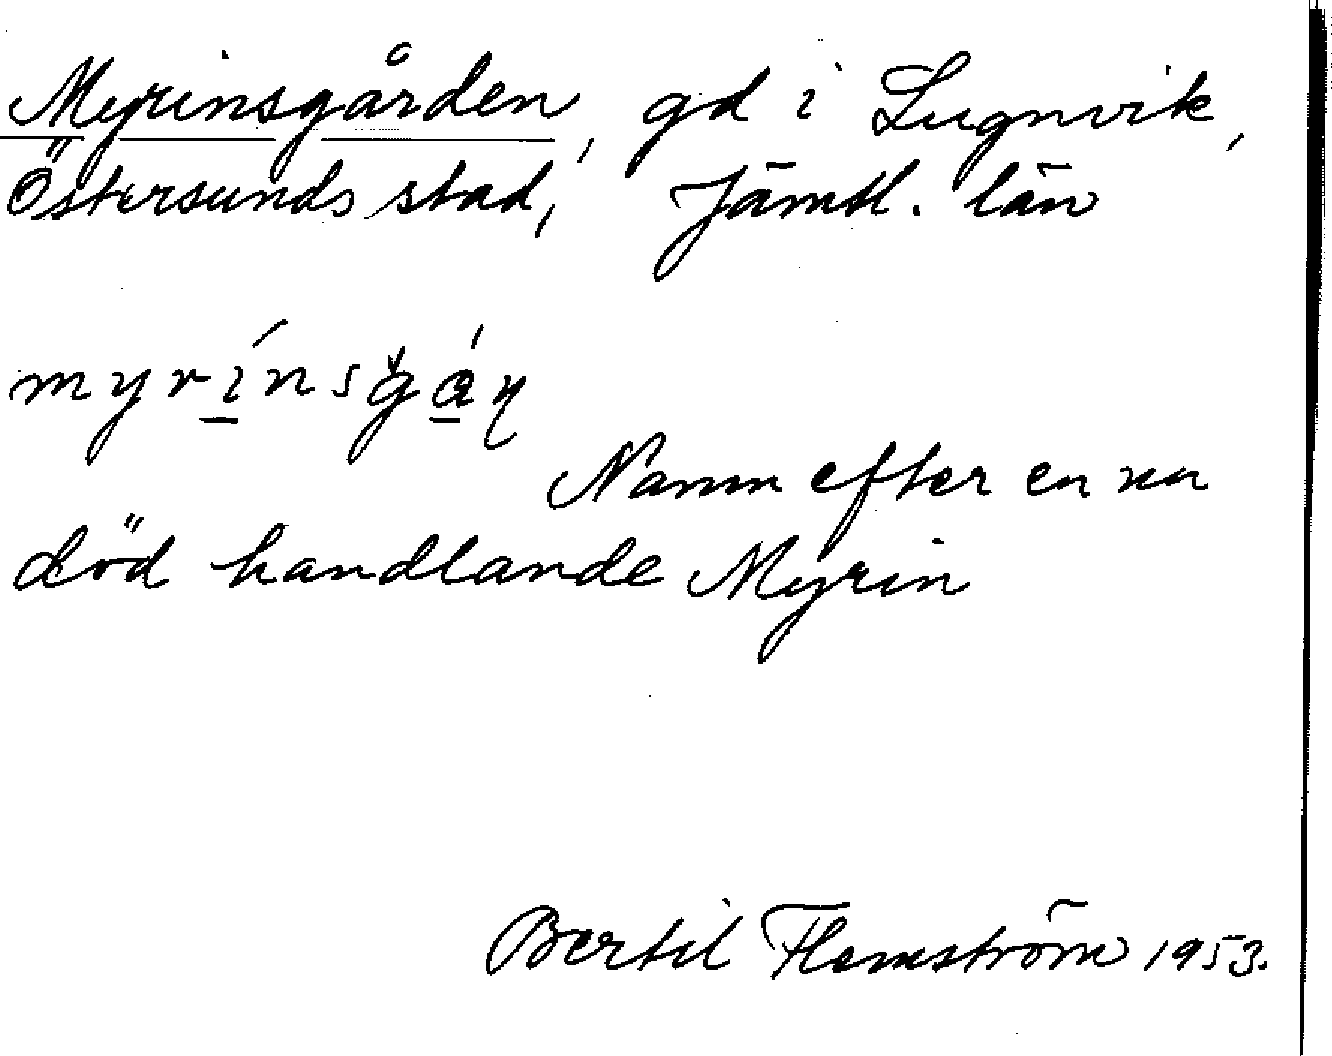 Myrinsgården, gd i Lugnvik,
Östersunds stad, Jämtl. län
myrínsgán
Namn efter en nu
död handlande Myrin
Bertil Flemström 1953.